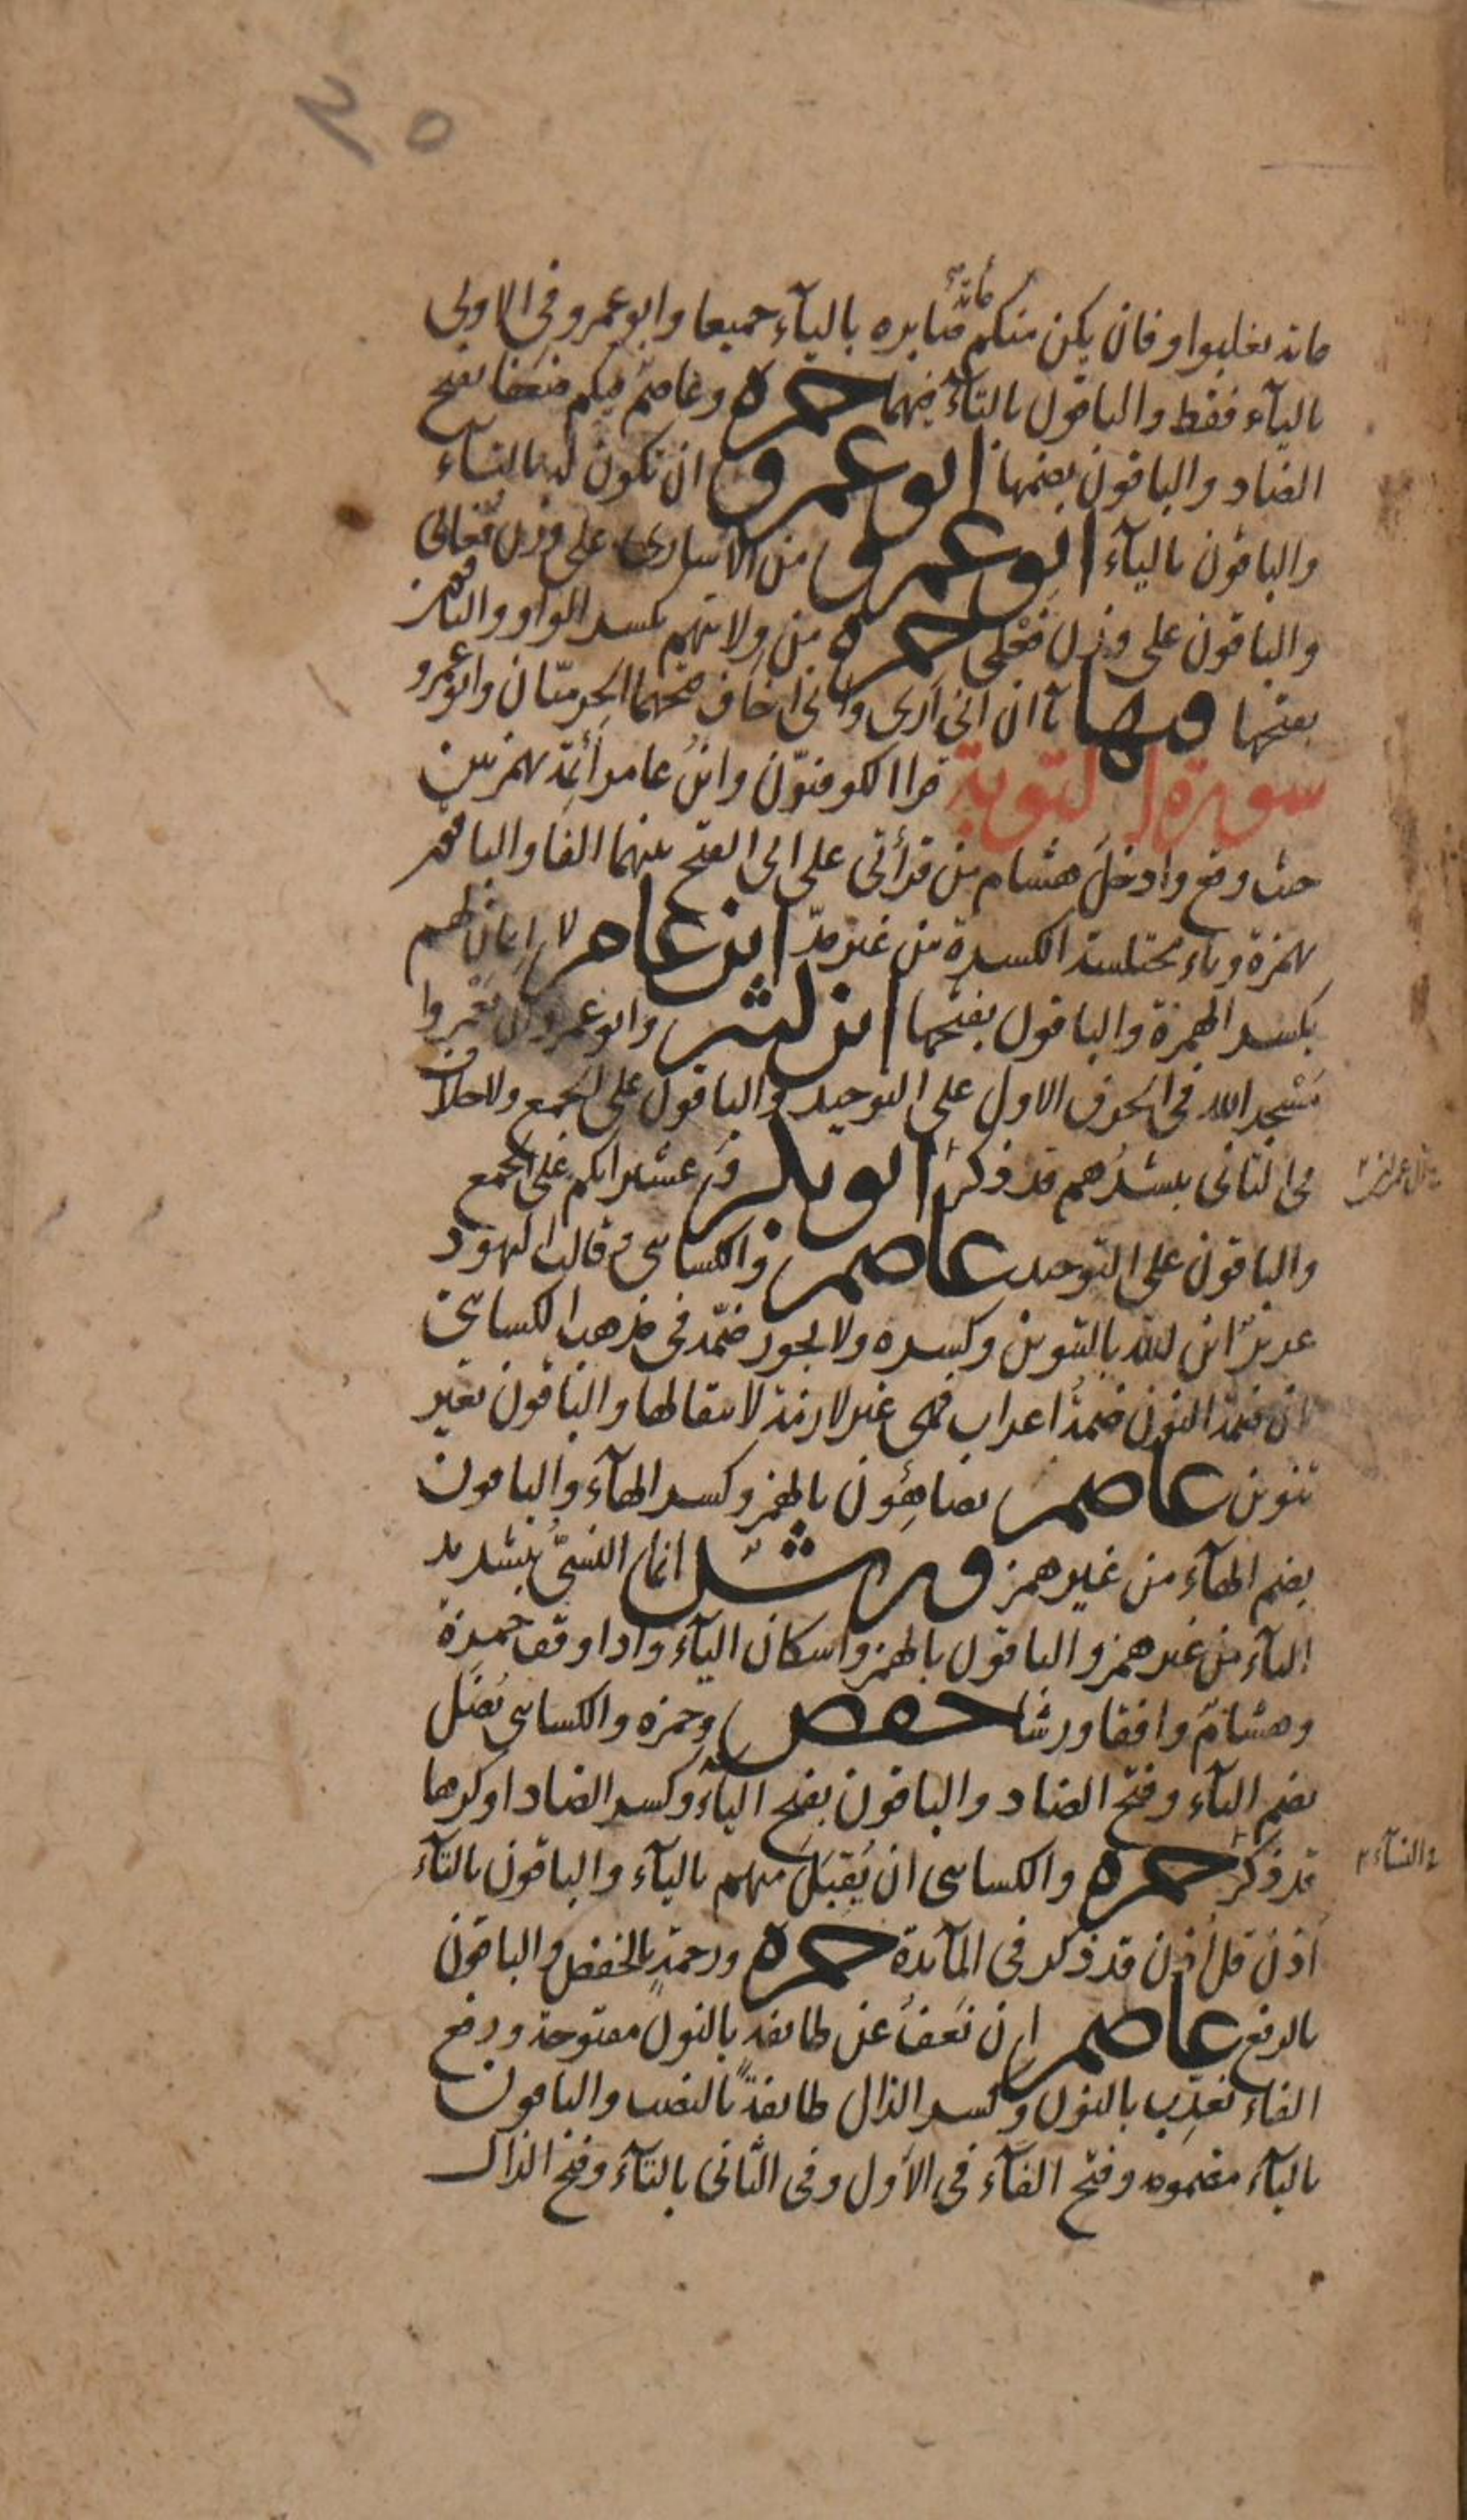 ٢٥
مائة
مائة يغلبوا وفان يكن منكم صابره بالياء جميعا وابو عمرو في الاولى
بالياء فقط والباقون بالتاء فيهما حمزة وعاصم فيكم ضعفا بفتح
الضاد والباقون بضمها ابو عمرو ان تكون له بالتاء
والباقون بالياء ابو عمرو من الاسارى على وزن فعالى
والباقون على وزن فعلى حمزة من ولايتهم بكسر الواو والباقون
بفتحها وفيها يآان اني أرى واني اخاف فتحهما الحرميّان وابو عمرو
سورة التوبة قرا الكوفيّون وابن عامر أئمة بهمزتين
حيث وقع وادخل هشام من قرأتي على ابي الفتح بينهما الفا والباقون
بهمزة وياء مختلسة الكسرة من غير مدّ ابن عامر لا إيمان لهم
بكسر الهمزة والباقون بفتحها ابن كثير وابو عمرو ان يعمروا
مسجد الله في الحرف الاول على التوحيد والباقون على الجمع ولا خلاف
في الثاني يبشرهم قد ذكر ابو بكر وعشيراتكم على الجمع
والباقون على التوحيد عاصم والكسائي وقالت اليهود
عزيرٌ ابن الله بالتنوين وكسره ولا يجوز ضمّه في مذهب الكسائي
لان ضمّة النون ضمة اعراب فهي غير لازمة لانتقالها والباقون بغير
تنوين عاصم يضاهِؤن بالهمز وكسر الهاء والباقون
بضم الهاء من غير همز ورش انما النسيّ بتشديد
الياء من غير همز والباقون بالهمز واسكان الياء واذا وقف حمزة
وهشام وافقا ورشا حفص وحمزة والكسائي يُضَل
بضم الياء وفتح الضاد والباقون بفتح الياء وكسر الضاد او كرها
قد ذكر حمزة والكسائي ان يُقبَلَ منهم بالياء والباقون بالتاء
أذن قل أذن قد ذكر في المآئدة حمزة ورحمةٍ بالخفض والباقون
بالرفع عاصم ان نَعفُ عن طائفة بالنون مفتوحة ورفع
الفاء نعذِب بالنون وكسر الذال طائفةً بالنصب والباقون
بالياء مضمومة وفتح الفآء في الاول وفي الثاني بالتآء وفتح الذال
في النسآء